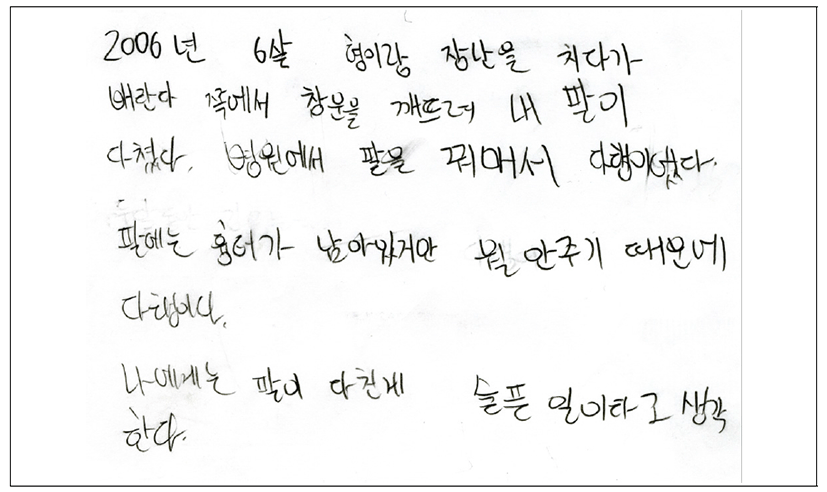 2006년 6살 형이랑 장난을 치다가
배란다 쪽에서 창문을 깨뜨려 내 팔이
다쳤다. 병원에서 팔을 꿔매서 다행이였다.
팔에는 흉터가 남아있지만 뭘 안주기 때문에
다행이다.
나에게는 팔이 다친게 슬픈 일이타고 생각
한다.